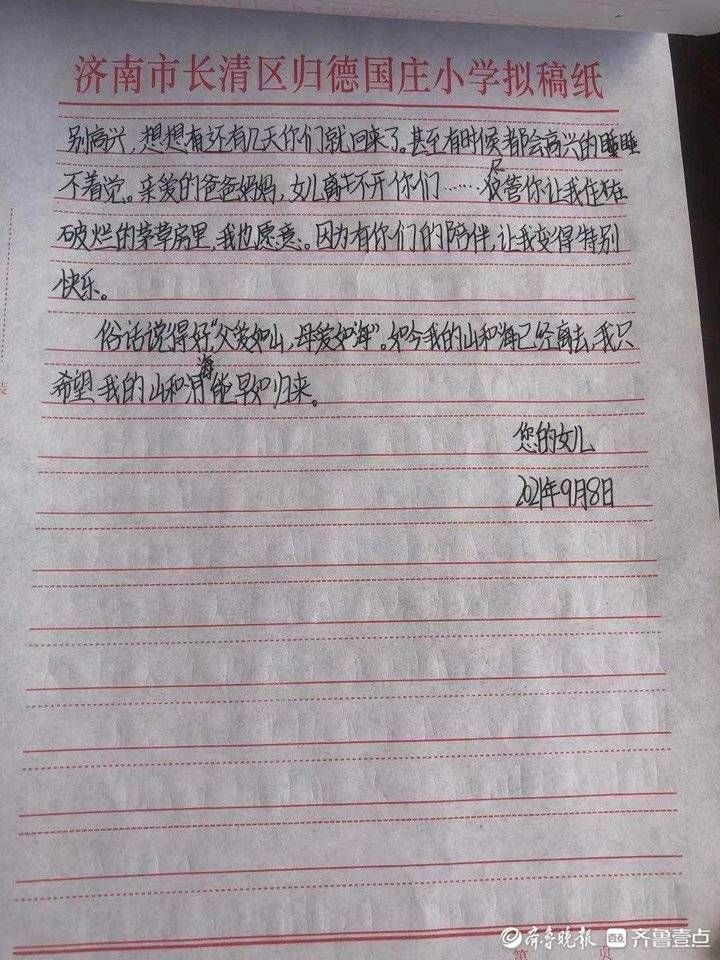 济南市长清区归德国庄小学拟稿纸
别高兴，想想有还有几天你们就回来了。甚至有时候都会高兴的睡睡
不着觉。亲爱的爸爸妈妈，女儿离不开你们……尽管你让我住在
破烂的茅草房里，我也愿意。因为有你们的陪伴，让我变得特别
快乐。
俗话说得好“父爱如山，母爱如海”。如今我的山和海已经离去，我只
希望我的山和海能早如归来。
您的女儿
2021年9月8日
第 页
齐鲁晚报 齐鲁壹点